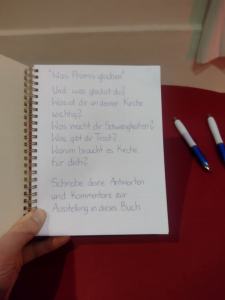 "Was Promis glauben"
Und was glaubst du?
Was ist dir an deiner Kirche
wichtig?
Was macht dir Schwierigkeiten?
Was gibt dir Trost?
Warum braucht es Kirche
für dich?
Schreibe deine Antworten
und Kommentare zur
Ausstellung in dieses Buch